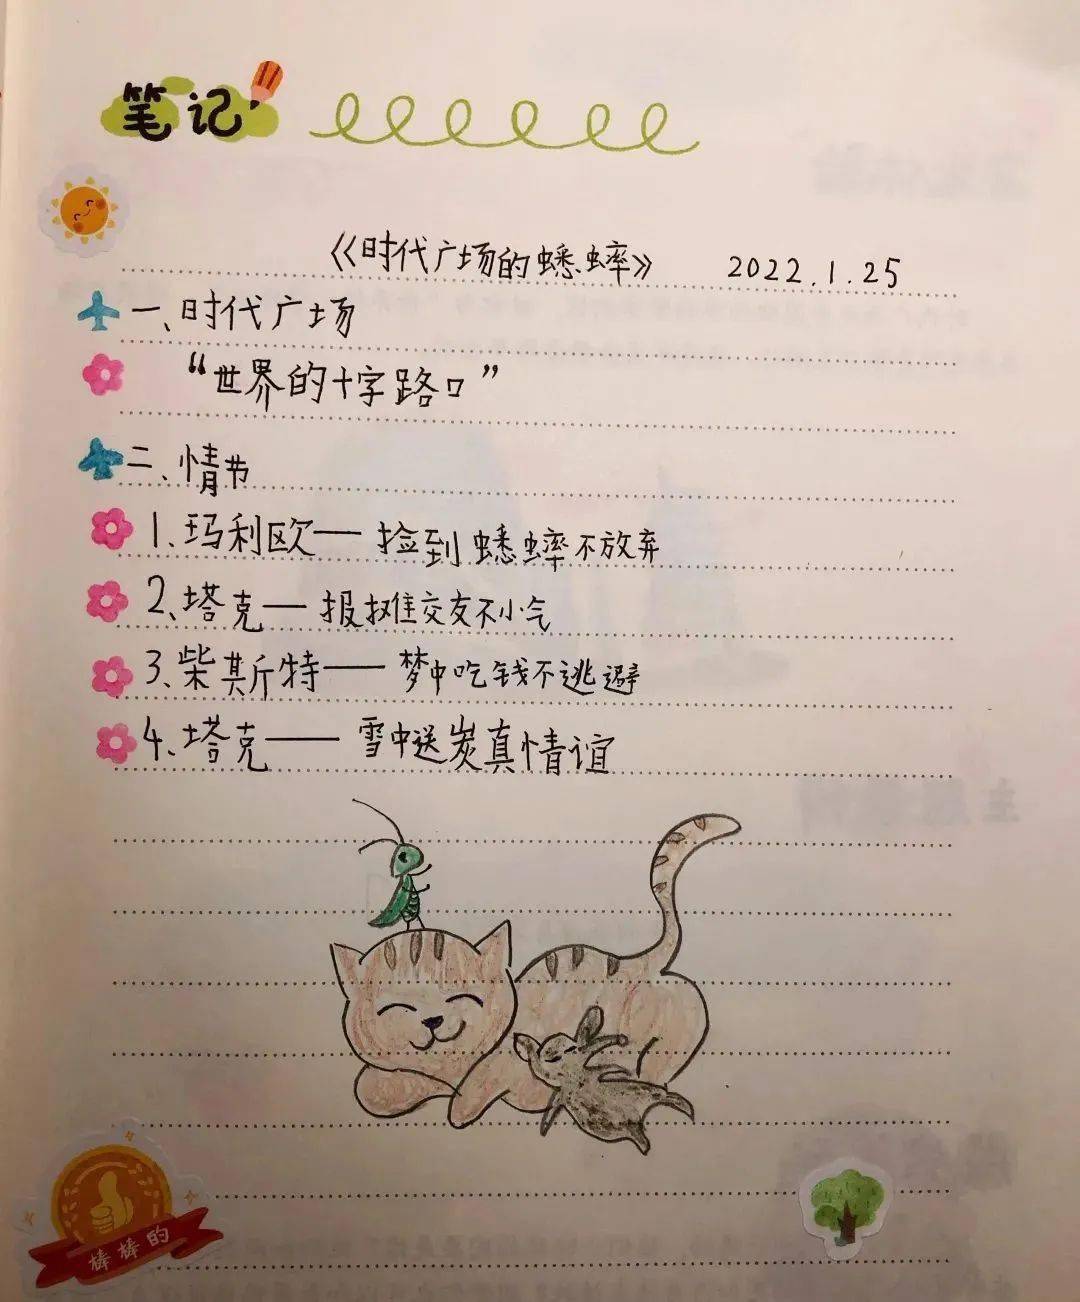 笔记
《时代广场的蟋蟀》 2022.1.25
一、时代广场
“世界的十字路口”
二、情节
1.玛利欧——捡到蟋蟀不放弃
2、塔克——报摊交友不小气
3、柴斯特——梦中吃钱不逃避
4、塔克——雪中送炭真情谊
棒棒的